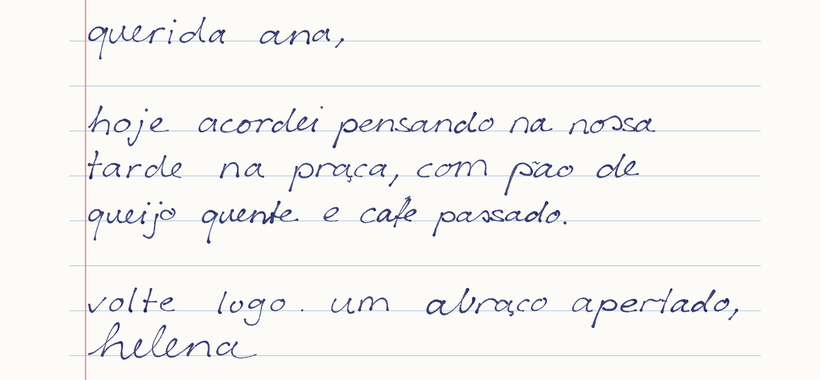 querida ana,
hoje acordei pensando na nossa
tarde na praça, com pão de
queijo quente e café passado.
volte logo. um abraço apertado,
helena